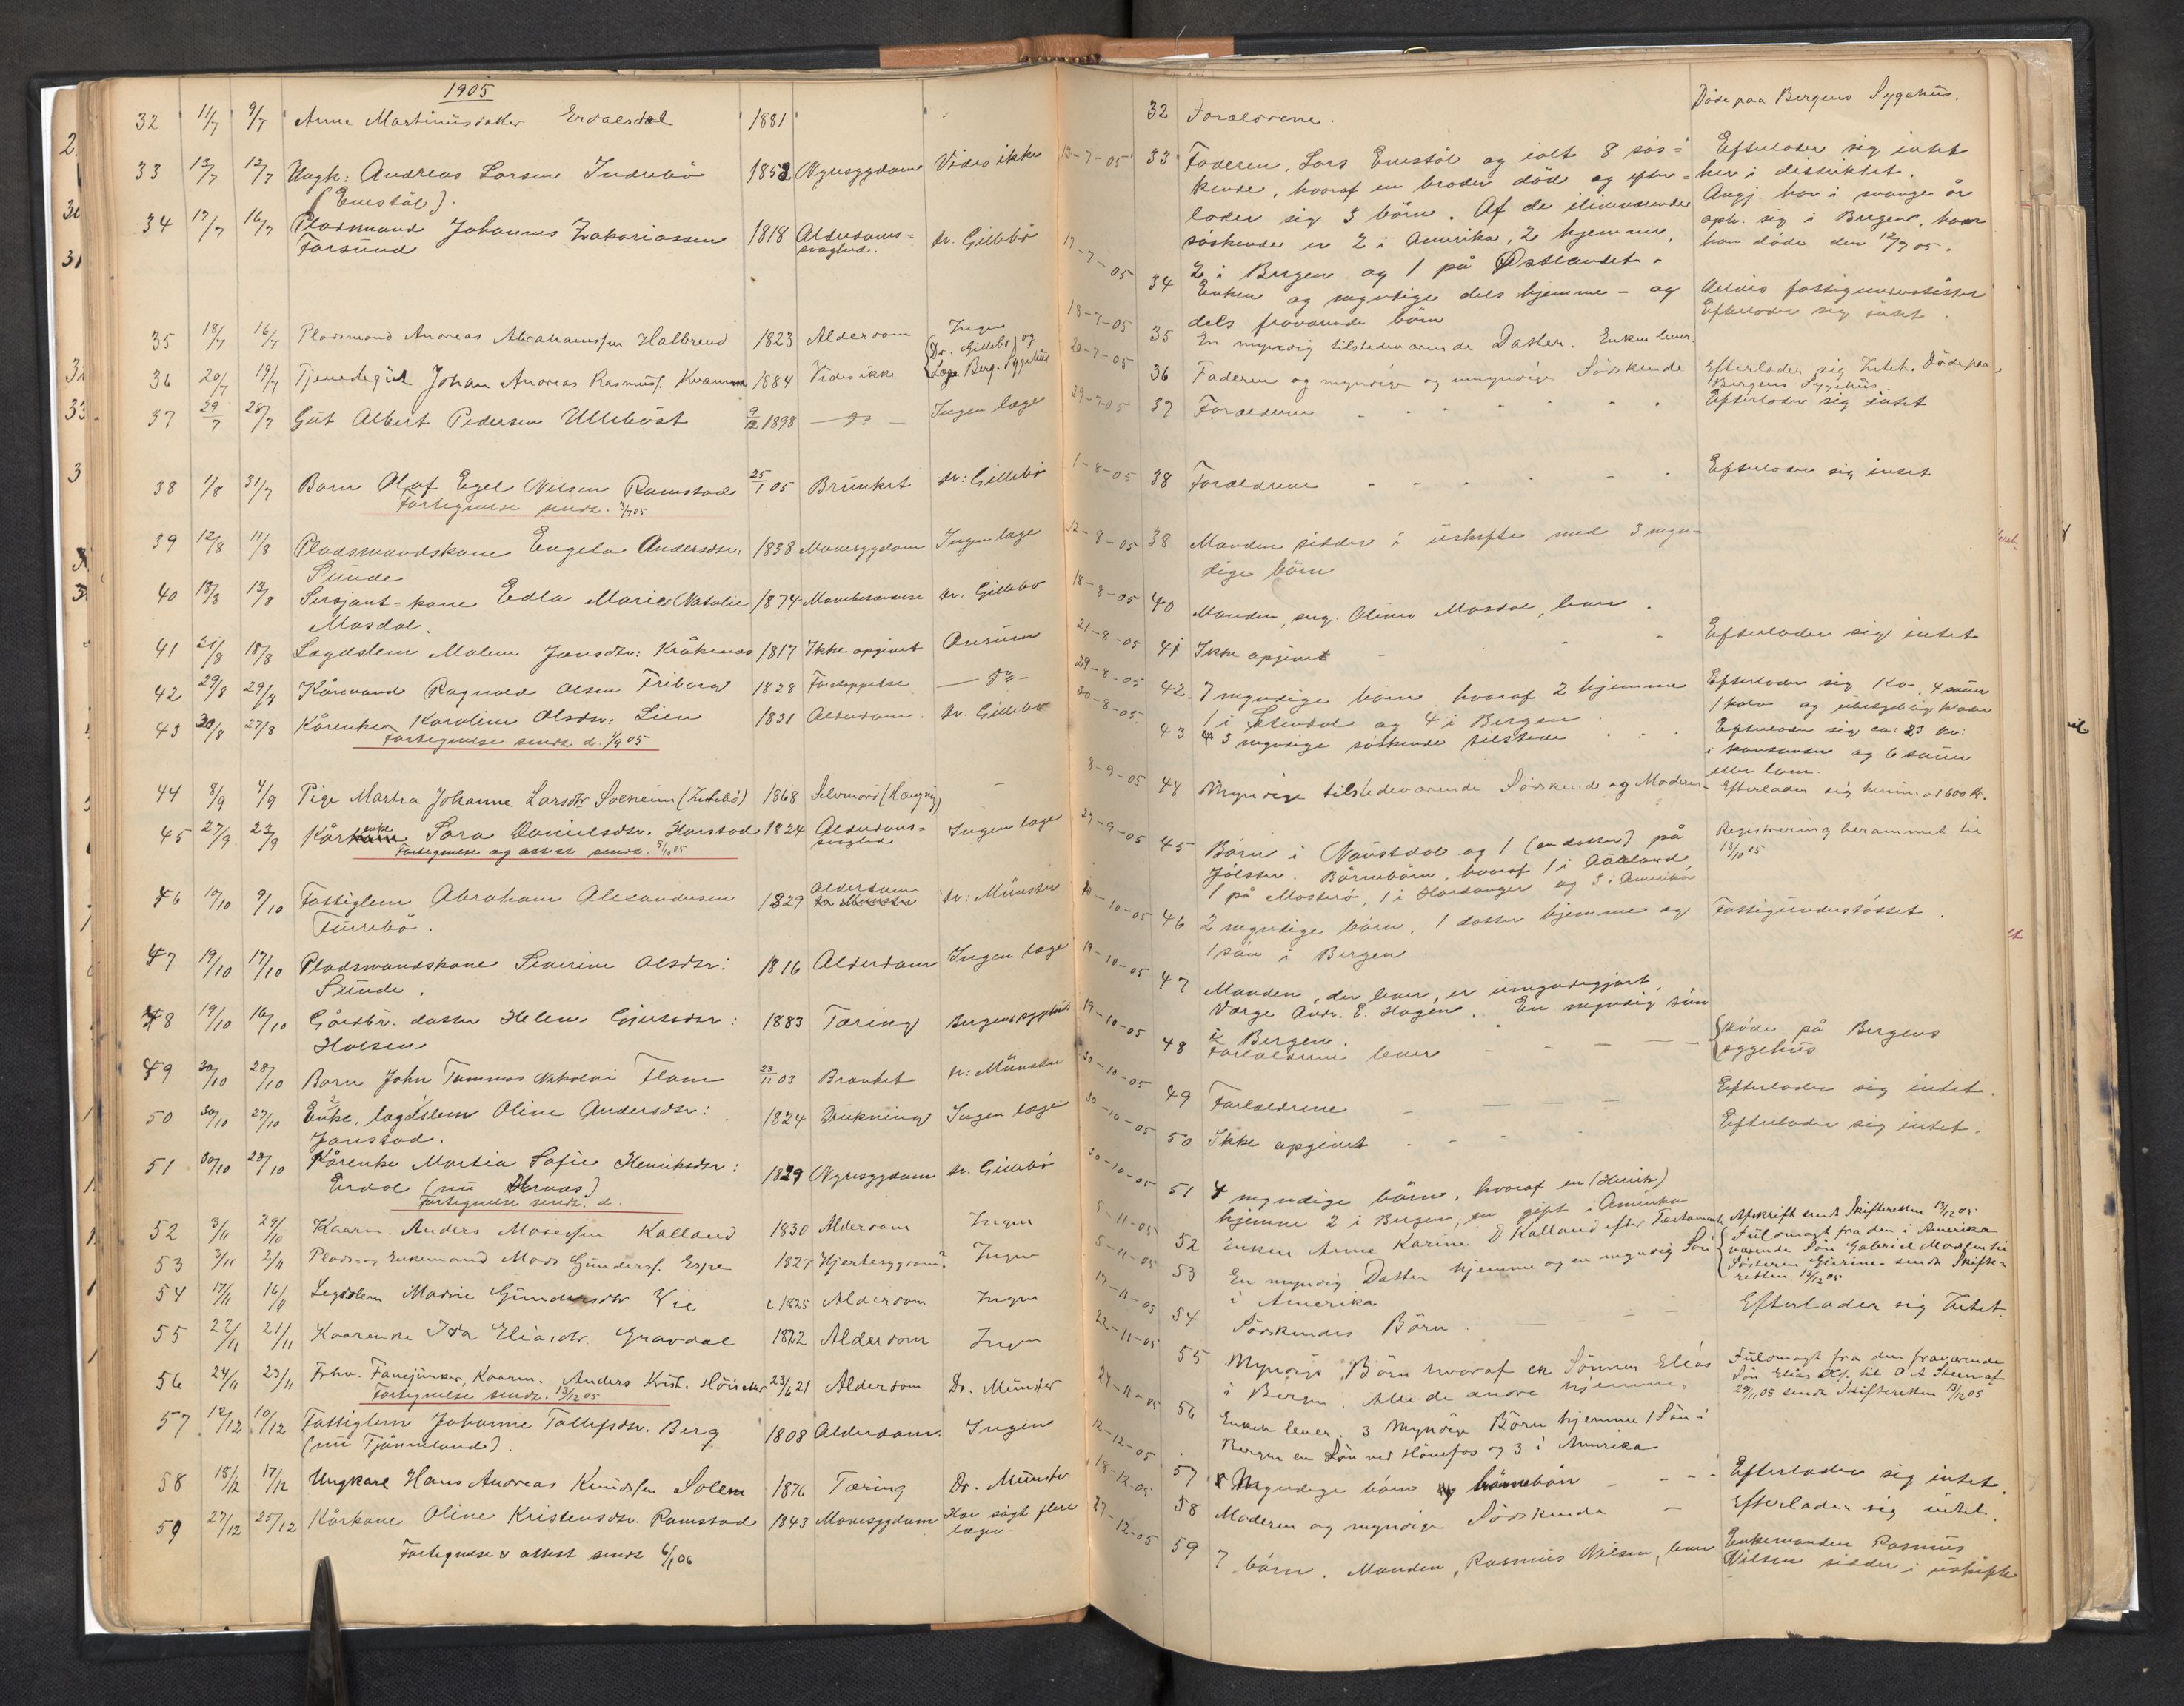 1905
32 11/7 9/7 Anne Martinusdatter Erdalsdal 1881
33 13/7 12/7 Ungk: Andreas Larsen Indrebö 1852 Nyresygdom Vides ikke
(Emstöl).
34 17/7 16/7 Pladsmand Johannes Zakariassen 1818 Alderdoms= dr. Gillebö
Forsund svaghed.
35 18/7 16/7 Pladsmand Andreas Abrahamssen Halbrend 1823 Alderdom Ingen
36 20/7 19/7 Tjenestegut Johan Andreas Rasmuss. Kvamme 1884 Vides ikke {Dr. Gillebö og
Læge Berg. Sygehus
37 29/7 28/7 Gut Albert Pedersen Ulleböst 9/12 1898 —"— Ingen læge
38 1/8 31/7 Barn Olaf Egel Nilsen Ramstad 25/1 05 Brunkit dr: Gillebö
Fortegnelse sendt. 3/7 05
39 12/8 11/8 Pladsmandskone Engela Andersdtr. 1838 Mavesygdom Ingen læge
Sunde
40 18/8 13/8 Sersjant=kone Edla Marie Natalie 1874 dr. Gillebö
Mosdal.
41 21/8 18/8 Lægdslem Malene Jansdtr: Kråkenes 1817 Ikke opgivet Ansum
42 29/8 29/8 Kårmand Ragnald Olsen Friborg 1828 Forstoppelse —do—
43 30/8 27/8 Kårenke Karoline Olsdtr: Lien 1831 Alderdom. dr. Gillebö
Fortegnelse sendt d. 1/9 05
44 8/9 4/9 Pige Martha Johanne Larsdtr Solheim (Indrebö) 1868 Selvmord (Hængning) –
45 27/9 23/9 Kårenke Sara Danielsdtr. Harstad 1824 Alderdoms= Ingen læge
Fortegnelse og attest sendt. 5/10 05 svaghed
46 10/10 9/10 Fattiglem Abraham Alexandersen 1829 Alderdom dr: Münster
Furebö.
47 19/10 17/10 Pladsmandskone Severine Olsdtr: 1816 Alderdom Ingen læge
Sunde.
48 19/10 16/10 Gårdbr. datter Helene Gjertsdtr: 1883 Tæring Bergens sygehus
Halsen
49 30/10 28/10 Barn John Tommas Nikolai Flam 23/11 03 Brankit dr: Münster
50 30/10 27/10 Enke, lægdslem Oline Andersdtr: 1824 Drukning Ingen læge
Janstad.
51 30/10 28/10 Kårenke Martia Sofie Henriksdtr: 1829 Nyresygdom dr. Gillebö
Erdal (nu Hornæs)
Fortegnelse sendt. d.
52 3/11 29/10 Kaarm. Anders Mosessen Kalland 1830 Alderdom Ingen
53 3/11 2/11 Plads- og Enkemand Mads Gunders. Espe 1827 Hjertesygdom? Ingen
54 17/11 16/11 Legdslem Madri Gundersdtr Vie c 1825 Alderdom Ingen
55 22/11 21/11 Kaarenke Ida Eliasdtr. Gravdal 1822 Alderdom Ingen
56 24/11 23/11 Frhv. Fanejunker, Kaarm. Anders Krist. 23/6 21 Alderdom Dr. Münster
Fortegnelse sendt. 13/12 05
57 12/12 10/12 Fattiglem Johanne Tollefsdtr. Berg 1808 Alderdom. Ingen
(nu Tjönneland).
58 18/12 17/12 Ungkarl Hans Andreas Knudsen Solem 1876 Tæring Dr. Münster
59 27/12 25/12 Kårkone Oline Kristensdtr. Ramstad 1843 Mavesygdom Har sögt flere
læger
Fortegnelse & attest sendt 6/1 06
32 Forældrene. Döde paa Bergens Sygehus.
13-7-05 33 Faderen, Lars Emstöl og ialt 8 sös= Efterlader sig intet
kende, hvoraf en broder död og efter= her i distriktet.
lader sig 3 börn. Af de tilværende Angj. har i mange år
söskende er 2 i Amerika, 2 hjemme, oph. sig i Bergen, hvor
2 i Bergen og 1 på Østlandet. han döde den 12/7 05.
17-7-05 34 Enken og myndige dels hjemme- og fattigunderstöttet
dels fraværende börn Efterlader sig intet.
18-7-05 35 En myndig tilstedeværende Datter. Enken lever.
20-7-05 36 Faderen og myndige og umyndige Södskende Efterlader sig Intet. Döde paa
Bergens Sygehus
29-7-05 37 Forældrene Efterlader sig intet
1-8-05 38 Forældrene Efterlader sig intet
12-8-05 38 Manden sidder i uskifte med 3 myn-
dige börn
18-8-05 40 Manden, serg. Oliver Mosdal, lever.
21-8-05 41 Ikke opgivet Efterlader sig intet
29-8-05 42. 7 myndige börn hvoraf 2 hjemme Efterlader sig 1 ko, 4 sauer
1 i Setesdal og 4 i Bergen. 1 kalv og ubetydelig klæder
30-8-05. 43 3 myndige söskende tilstede Efterlader sig ca: 23 kr:
i kontanter og 6 sauer
eller lam.
8-9-05 44 Myndige tilstedeværende Södskende og Moderen Efterlader sig henimod 600 Kr.
27-9-05 45 Börn i Naustdal og 1 (en datter) på Registrering berammet til
Jölster. Börnebörn, hvoraf 1 i Aaland, 13/10 05
1 på Mosterö, 1 i Hardanger og 3 i Amerika
10-10-05 46 2 myndige börn, 1 datter hjemme og Fattigunderstöttet.
1 sön i Bergen.
19-10-05 47 Manden, der lever, er umyndiggjort.
Værge Andr. E. Hagen. En myndig sön
i Bergen.
19-10-05 48 Forældrene lever {döde på Bergens
sygehus
30-10-05 49 Forældrene Efterlader sig intet.
30-10-05 50 Ikke opgivet Efterlader sig intet.
30-10-05 51 4 myndige börn, hvoraf en (Henrik)
hjemme 2 i Bergen, en gift i Amerika
5-11-05 52 Enken Anne Karine D Kalland efter Testament Afskrift sendt Skifteretten 13/12 05
5-11-05 53 En myndig Datter hjemme og en myndig Sön {Fuldmagt fra den i Amerika
i Amerika værende Sön Gabriel Madsen til
Sösteren Gurine sendt Skifte-
retten 13/12 05
17-11-05 54 Södskendes Börn. Efterlader sig Intet.
22-11-05 55 Myndige Börn hvoraf en Sönnen Elias Fuldmagt fra den fraværende
i Bergen. Alle de andre hjemme. Sön Elias til O A Steen af
29/11 05 sendt Skifteretten 13/12 05
24-11-05 56 Enken lever. 3 Myndige Börn hjemme 1 Sön i
Bergen en Sön ved Hönefos og 3 i Amerika
12-12-05 57 Myndige börn og börnebörn Efterlader sig intet.
18-12-05 58 Moderen og myndige Södskende Efterlader sig intet.
27-12-05 59 7 börn. Manden, Rasmus Nilsen, lever Enkemanden Rasmus
Nilsen sidder i uskifte